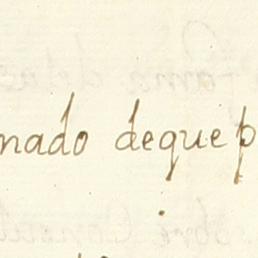 nado deque p